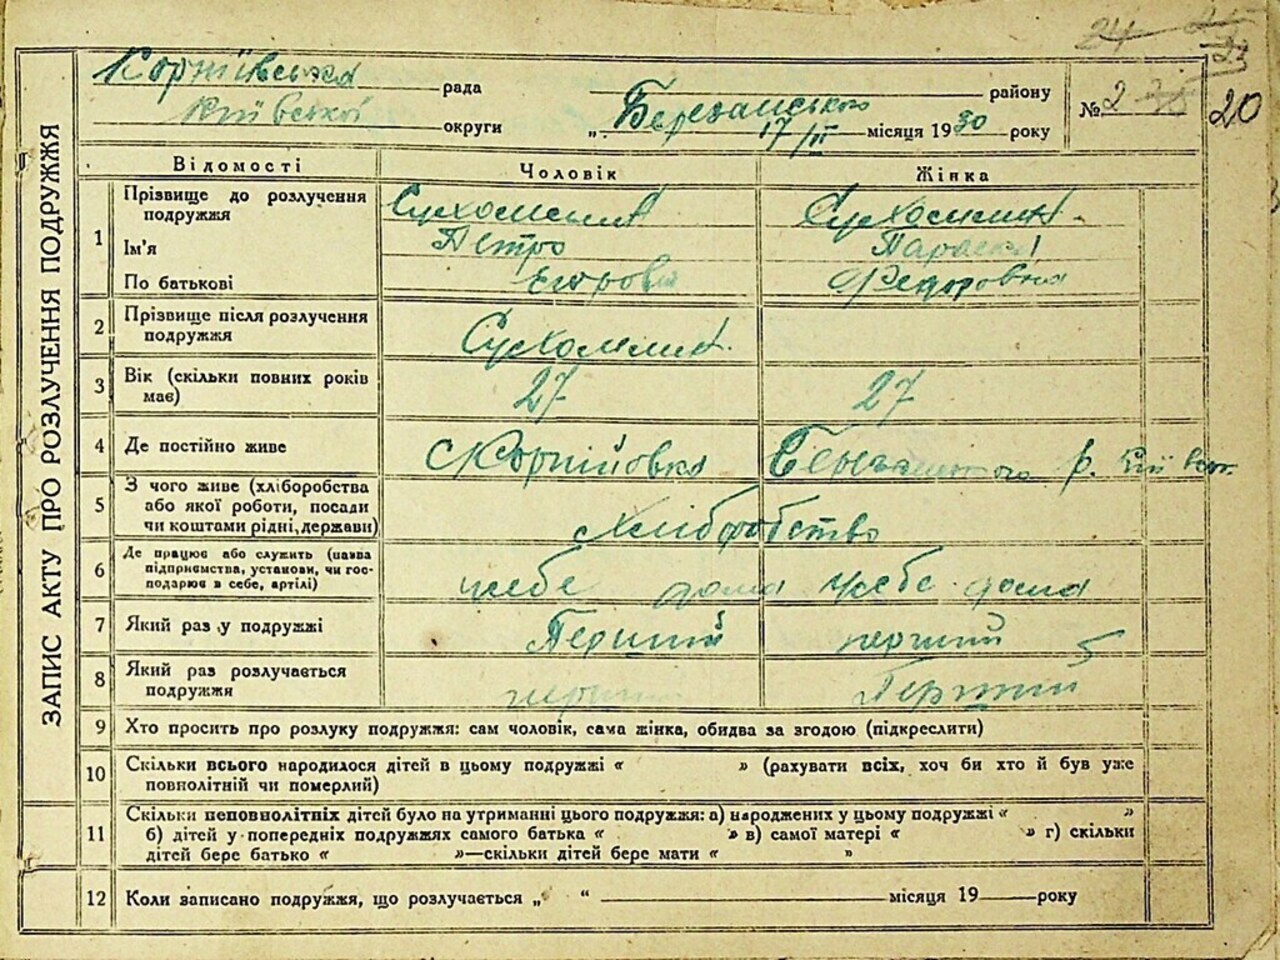 24
23
Корніївська рада Березанського району № 2 20
Київської округи „ 17/II місяця 1930 року
ЗАПИС АКТУ ПРО РОЗЛУЧЕННЯ ПОДРУЖЖЯ
Відомості Чоловік Жінка
1 Прізвище до розлучення подружжя Сухомлин Сухомлин
Ім'я Петро Параска
По батькові Єгорович Федоровна
2 Прізвище після розлучення подружжя Сухомлин.
3 Вік (скільки повних років має) 27 27
4 Де постійно живе с Корніївка Березанського р. Київськ.
5 З чого живе (хліборобства або якої роботи, посади чи коштами рідні, держави) Хліборобство
6 Де працює або служить (назва підприємства, установи, чи господарює в себе, артілі) у себе дома у себе дома
7 Який раз у подружжі Перший перший
8 Який раз розлучається подружжя перший Перший
9 Хто просить про розлуку подружжя: сам чоловік, сама жінка, обидва за згодою (підкреслити)
10 Скільки всього народилося дітей в цьому подружжі « » (рахувати всіх, хоч би хто й був уже
повнолітній чи померлий)
11 Скільки неповнолітніх дітей було на утриманні цього подружжя: а) народжених у цьому подружжі « »
б) дітей у попередніх подружжях самого батька « » в) самої матері « » г) скільки
дітей бере батько « »—скільки дітей бере мати « »
12 Коли записано подружжя, що розлучається „ “ місяця 19 року